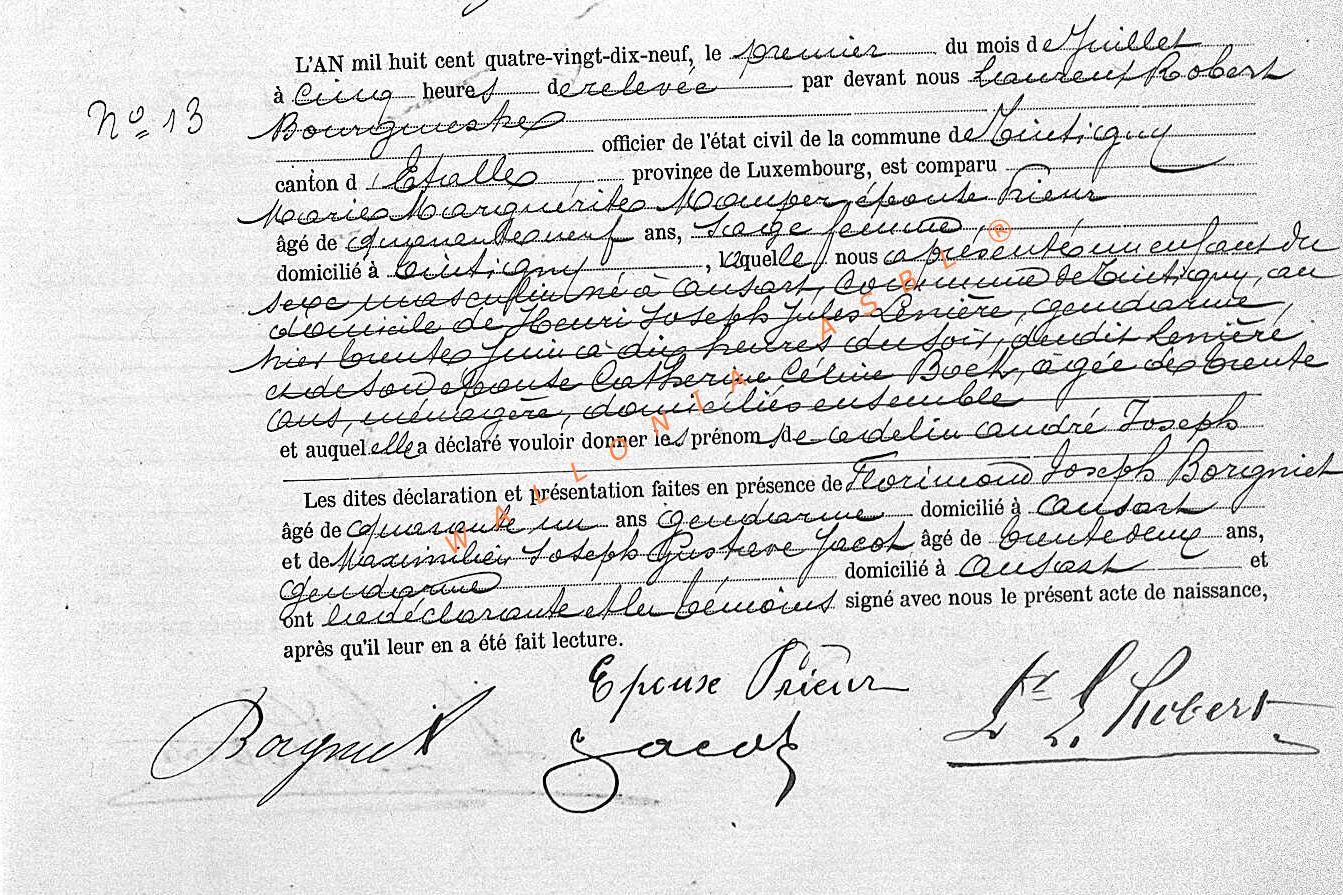 L'AN mil huit cent quatre-vingt-dix-neuf, le premier du mois de Juillet
à cinq heures de relevée par devant nous Laurent Robert
N° 13
Bourgmestre
officier de l'état civil de la commune de Tintigny
canton d'Etalle province de Luxembourg, est comparu
Marie Marguerite épouse Prieur
âgé de quarante neuf ans, sage femme,
domicilié à Tintigny, laquelle nous a présenté un enfant du
sexe masculin né à Ansart, commune de Tintigny, au
domicile de Henri Joseph Jules Lenière, gendarme,
hier trente Juin à dix heures du soir, dudit Lenière
et de son épouse Catherine Céline Bock, âgée de trente
ans, ménagère, domiciliés ensemble
et auquel elle a déclaré vouloir donner les prénoms de Adelin André Joseph
Les dites déclaration et présentation faites en présence de Florimond Joseph Borgniet
âgé de quarante un ans gendarme domicilié à Ansart
et de Maximilien Joseph Gustave Jacot âgé de trente deux ans,
gendarme domicilié à Ansart et
ont la déclarante et les témoins signé avec nous le présent acte de naissance,
après qu'il leur en a été fait lecture.
Epouse Prieur
Borgniet Jacot L. Robert
WALLONIA ASBL ®